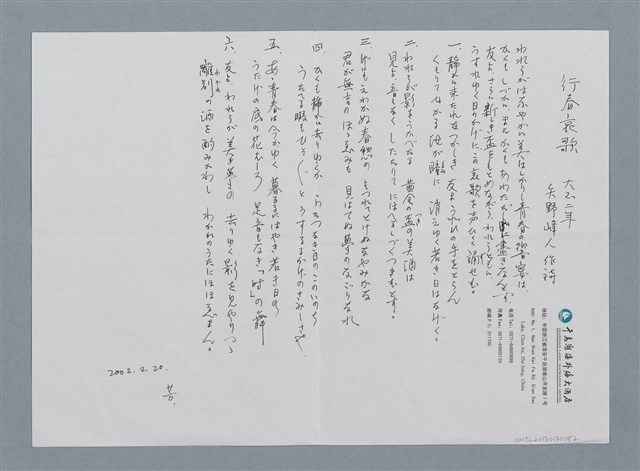 行春哀歌　大正二年　矢野峰人作詩
われらがはなやかに美はしかりし青春の饗宴は、
かくもしづかに、またかくもあわただしく盡きなんとす。
友よ、さらに新しき盃をもとめながら、われらともに
うすれゆく日のかげに、この哀歌を声ひくく誦せむ。
一、静かに来たれなつかしき 友ようれひの手をとらん
くもりてひかる汝が瞳に 消えゆく若き日はなげく。
二、われらが影をうかべたる 黄金の盃の美酒は
見よ、音もなくしたたりて にほへるしづくつきむとす。
三、げにもえわかぬ春愁の もつれてとけぬなやみかな
君が無言のほゝゑみも 見はてぬ夢のなごりなれ
四、かくも静かに去りゆくか ふたつなき日のこのいのち
うたへる暇もひそ〳〵と うするるかげのさみしさに、
五、あゝ青春は今かゆく 暮るるにはやき若き日の
うたげの庭の花むしろ 足音もなき「時」の舞
六、友よわれらが美き夢の 去りゆく影を見やりつつ
離別の酒を酌みかわし わかれのうたにほほゑまん。
2002.2.20.
千岛湖海外海大酒店